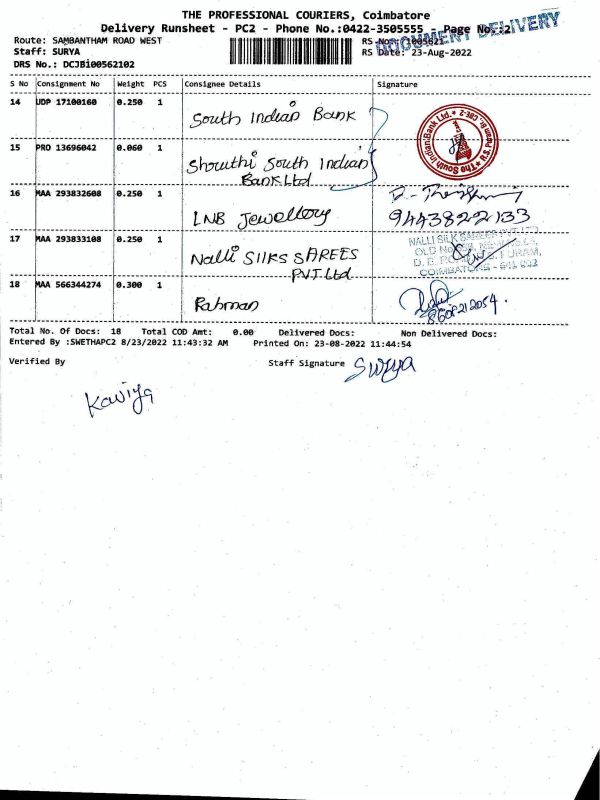 THE PROFESSIONAL COURIERS, Coimbatore
Delivery Runsheet - PC2 - Phone No.:0422-3505555 - Page No.:2
DOCUMENT DELIVERY
Route: SAMBANTHAM ROAD WEST RS No: 1005621
Staff: SURYA RS Date: 23-Aug-2022
DRS No.: DCJBi00562102
S No Consignment No Weight PCS Consignee Details Signature
14 UDP 17100160 0.250 1 South Indian Bank
The South Indian Bank Ltd.
15 PRO 13696042 0.060 1 Shruthi South Indian
Bank Ltd
16 MAA 293832608 0.250 1 LNB Jewellery
9443822133
17 MAA 293833108 0.250 1 Nalli Silks SAREES
PVT.Ltd
NALLI SILK SAREES PVT LTD
COIMBATORE - 641 002
18 MAA 566344274 0.300 1 Rahman
8608212054.
Total No. Of Docs: 18 Total COD Amt: 0.00 Delivered Docs: Non Delivered Docs:
Entered By :SWETHAPC2 8/23/2022 11:43:32 AM Printed On: 23-08-2022 11:44:54
Verified By Staff Signature Surya
Kaviya